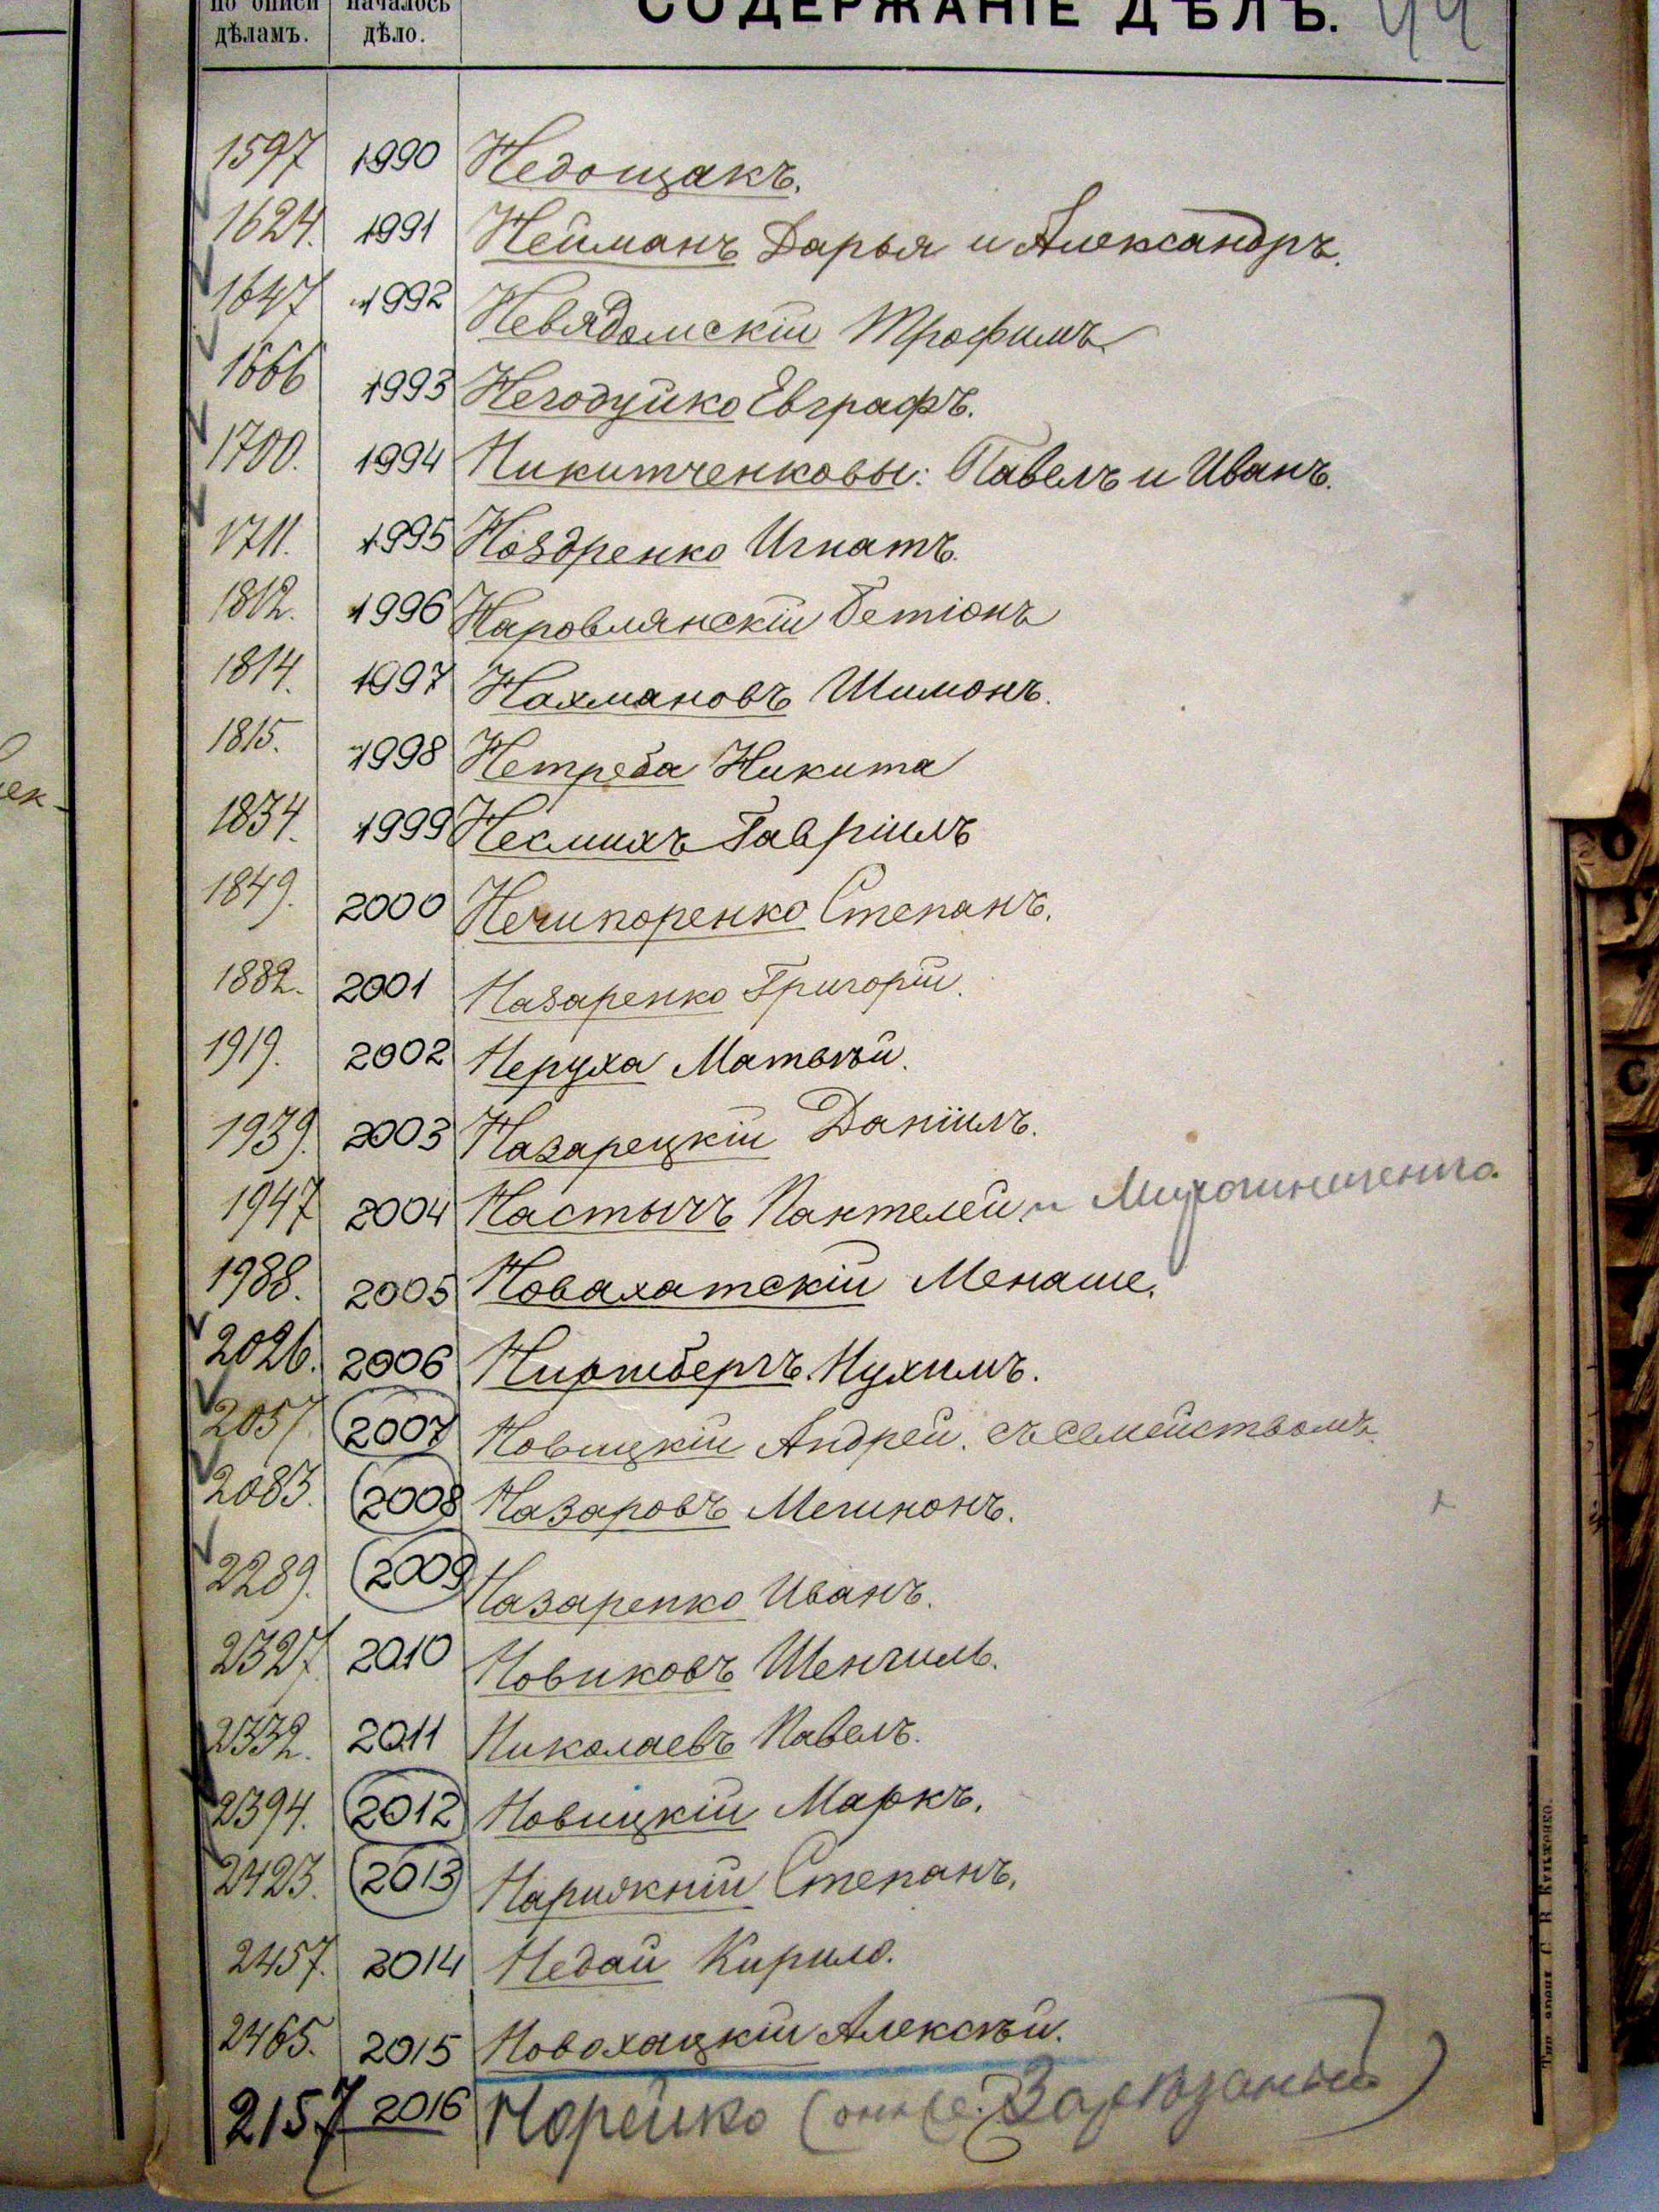 по описи началось СОДЕРЖАНІЕ ДѢЛЪ. 44
дѣламъ. дѣло.
1597 1990 Недощакъ.
1624. 1991 Нейманъ Дарья и Александръ.
1647 1992 Невядомскій Трофимъ
1666 1993 Негодуйко Евграфъ.
1700. 1994 Никитченковы: Павелъ и Иванъ.
1711. 1995 Ноздренко Игнатъ.
1812. 1996 Наровлянскій Бетіонъ
1814. 1997 Нахмановъ Шимонъ.
1815. 1998 Нетреба Никита
1834. 1999 Несмихъ Гавріилъ
1849. 2000 Нечипоренко Степанъ.
1882. 2001 Назаренко Григорій.
1919. 2002 Неруха Матвѣй.
1939. 2003 Назарецкій Даніилъ.
1947 2004 Настычъ Пантелей и
1988. 2005 Новахатскій Менаше.
2026. 2006 Ниренбергъ Нухимъ.
2057. 2007 Новицкій Андрей. съ семействомъ
2083. 2008 Назаровъ
2289. 2009 Назаренко Иванъ.
2327 2010 Новиковъ
2332. 2011 Николаевъ Павелъ.
2394. 2012 Новицкій Маркъ.
2423. 2013 Нарижній Степанъ.
2457. 2014 Недай Кирило.
2465. 2015 Новохацкій Алексѣй.
2157 2016 Норейко
ек-